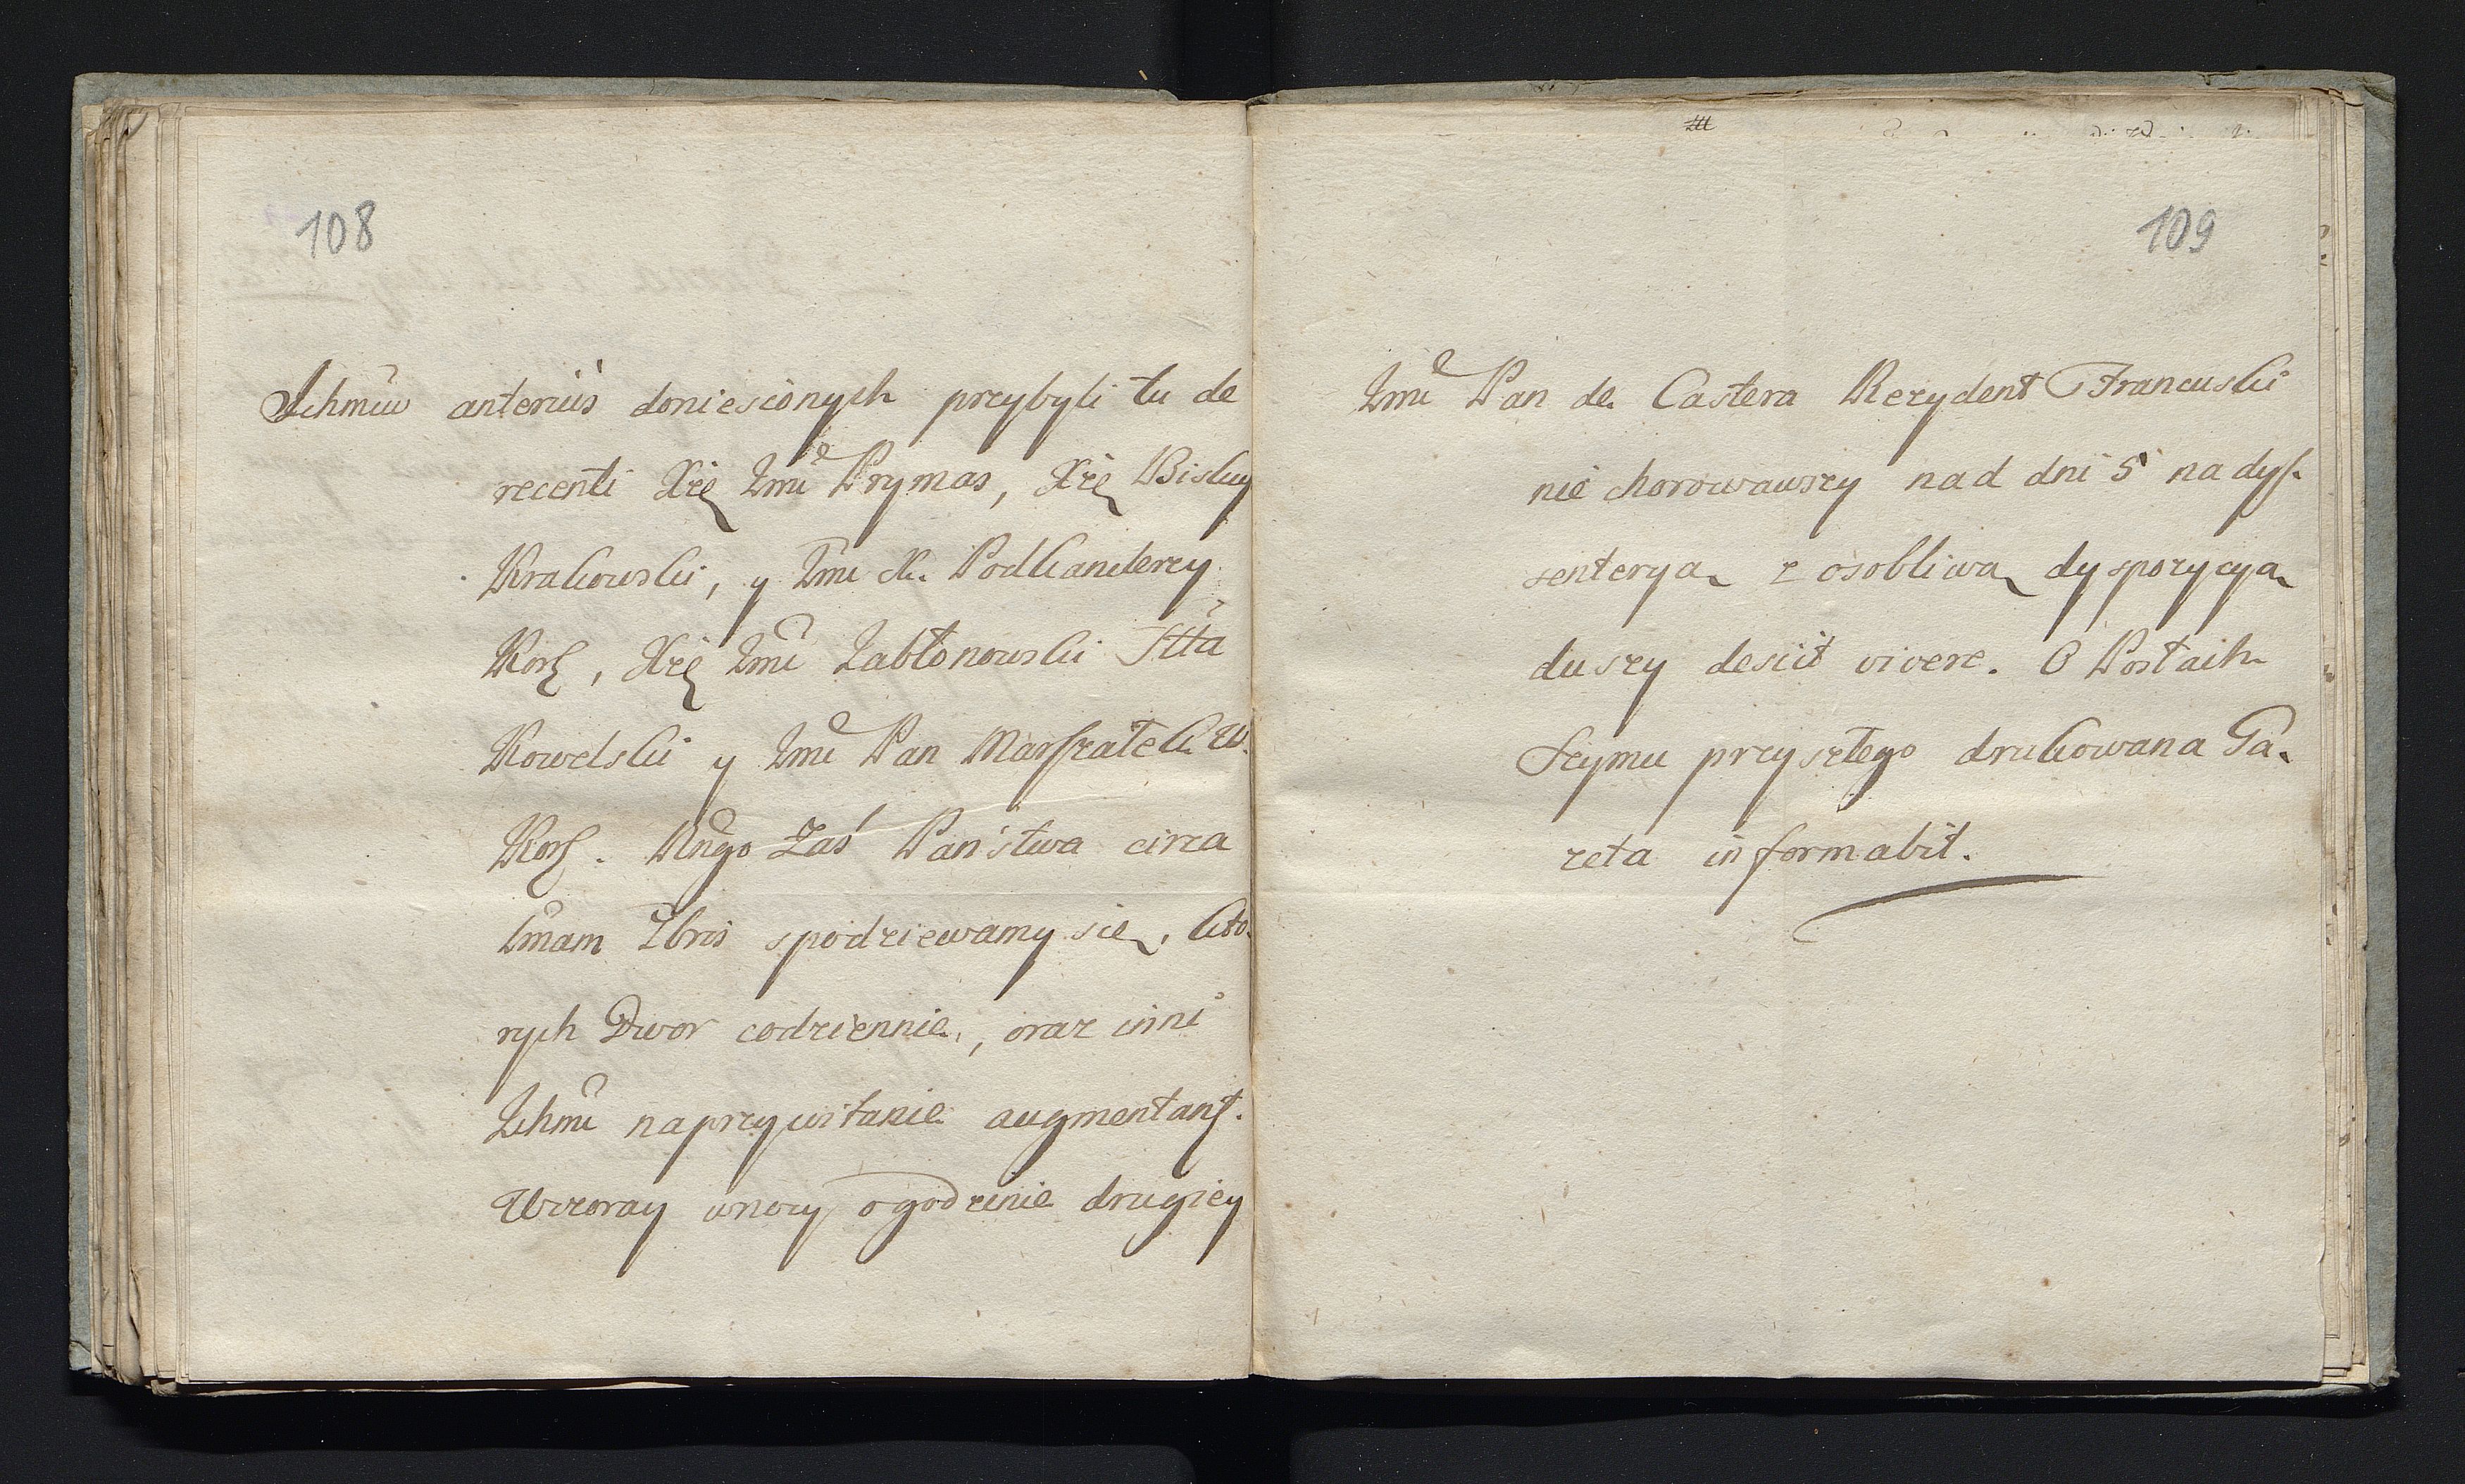 108
Ichmćw anteriùs doniesionych przybyli tu de
recenti Xżę Jmć Prymas, Xżę Biskup
Krakowski, y Jmć X. Podkanclerzy
Kor., Xżę Jmć Jabłonowski Stta
Kowelski y Jmć Pan Marszałek W.
Kor. Kngo Zaś Państwa circa
1mam 7bris spodziewamy się, kto-
rych Dwor codziennie, oraz inni
Ichmć na przywitanie augmentant.
Wczoray w nocy o godzinie drugiey
109
Jmć Pan de Castera Rezydent Francuski
nie chorowawszy nad dni 5 na dys-
senteryą z osobliwą dyspozycyą
duszy desiit vivere. O Postach
Seymu przyszłego drukowana Ga-
zeta informabit.